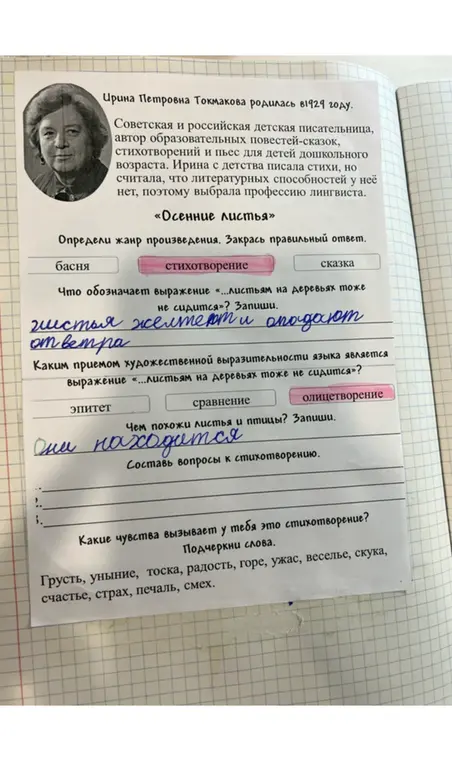 Ирина Петровна Токмакова родилась в1929 году.
Советская и российская детская писательница,
автор образовательных повестей-сказок,
стихотворений и пьес для детей дошкольного
возраста. Ирина с детства писала стихи, но
считала, что литературных способностей у неё
нет, поэтому выбрала профессию лингвиста.
«Осенние листья»
Определи жанр произведения. Закрась правильный ответ.
басня стихотворение сказка
Что обозначает выражение «...листьям на деревьях тоже
не сидится»? Запиши.
листья желтеют и опадают
от ветра
Каким приемом художественной выразительности языка является
выражение «...листьям на деревьях тоже не сидится»?
эпитет сравнение олицетворение
Чем похожи листья и птицы? Запиши.
Они находится
Составь вопросы к стихотворению.
Какие чувства вызывает у тебя это стихотворение?
Подчеркни слова.
Грусть, уныние, тоска, радость, горе, ужас, веселье, скука,
счастье, страх, печаль, смех.